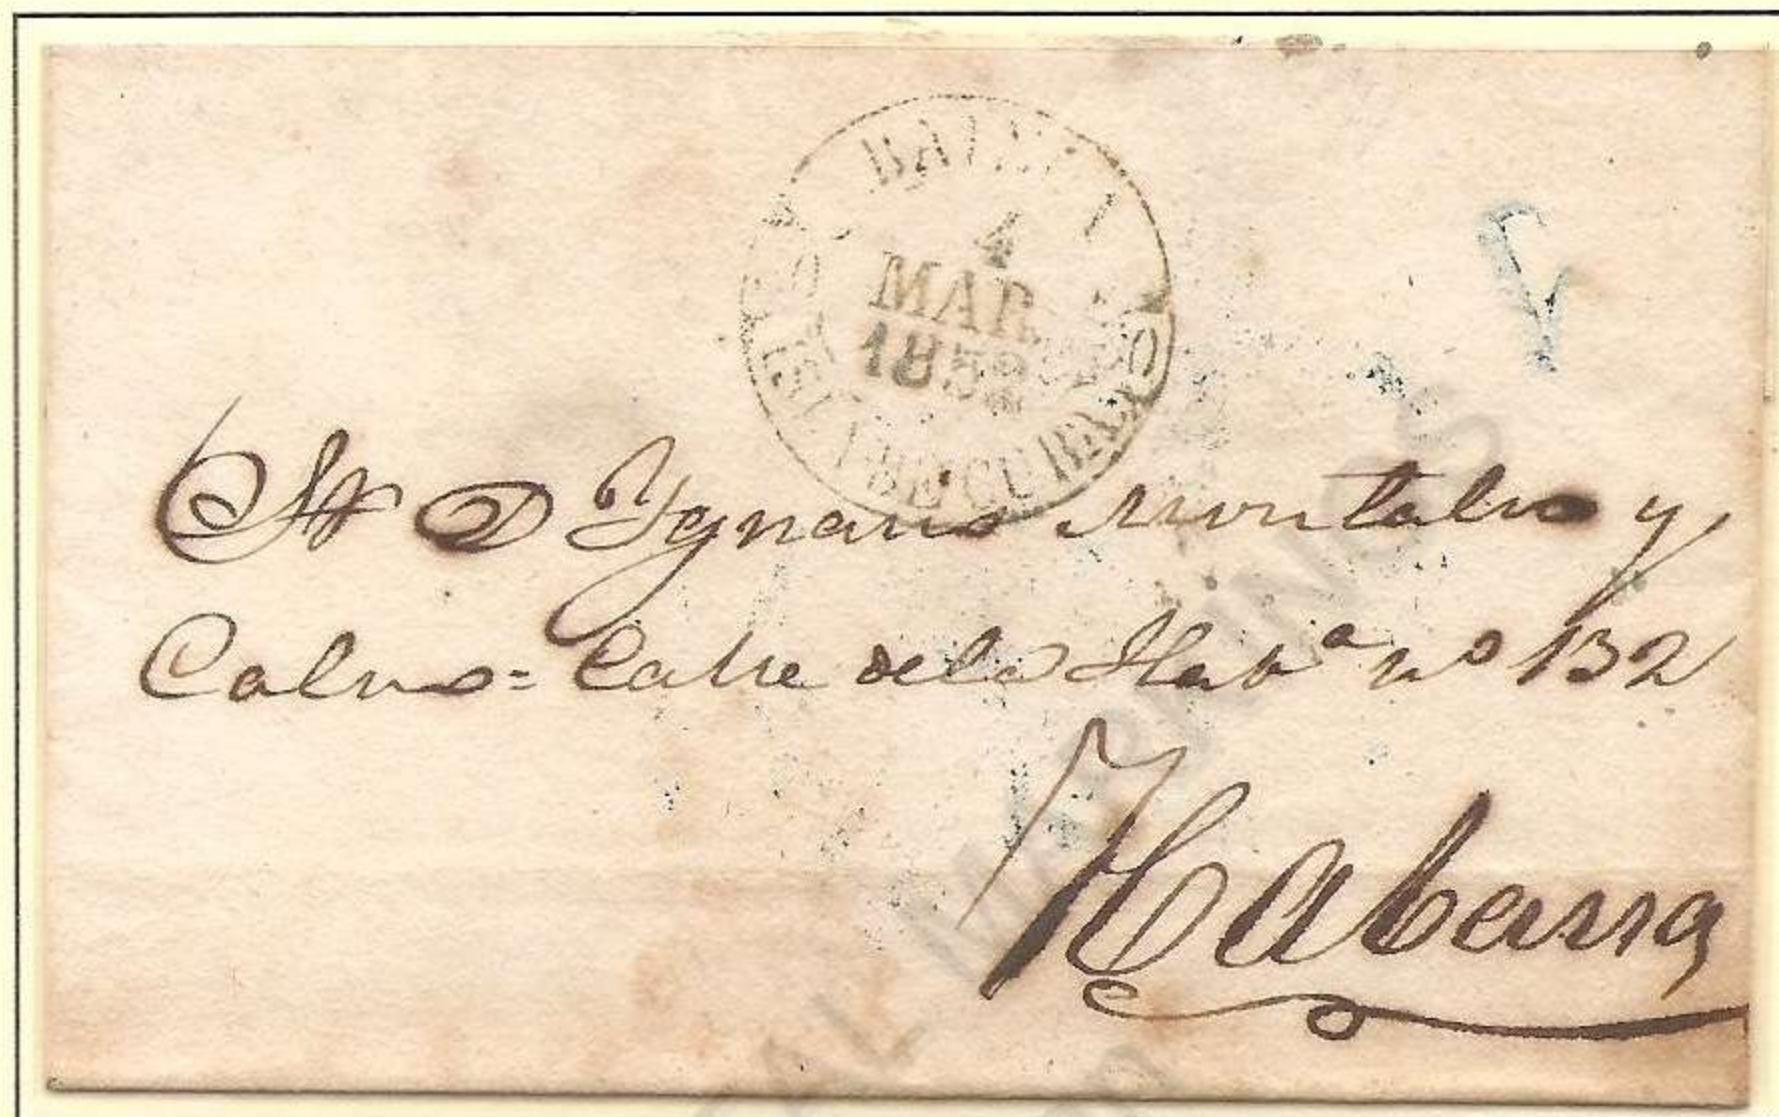 4
MAR
1852
Sr D Ygnacio Montalvo y
Calvo = Calle de la Habª nº 132
Habana